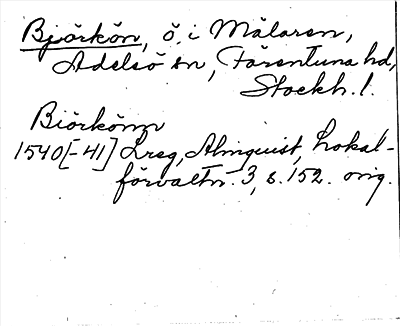 Björkön, ö. i Mälaren,
Adelsö sn, Färentuna hd,
Stockh. l.
Biörkönn
1540[-41] Lreg, Almquist, Lokal-
förvaltn. 3, s. 152. orig.